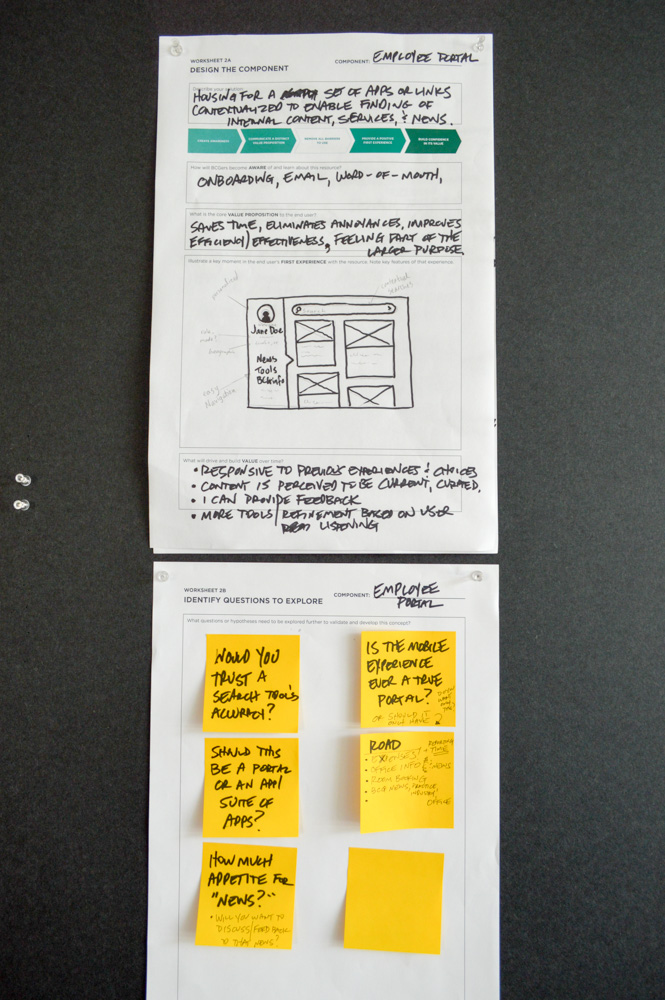 WORKSHEET 2A
DESIGN THE COMPONENT
COMPONENT: EMPLOYEE PORTAL
HOUSING FOR A SET OF APPS OR LINKS
CONTEXTUALIZED TO ENABLE FINDING OF
INTERNAL CONTENT, SERVICES, & NEWS.
CREATE AWARENESS
COMMUNICATE A DISTINCT
VALUE PROPOSITION
REMOVE ALL BARRIERS
TO USE
PROVIDE A POSITIVE
FIRST EXPERIENCE
BUILD CONFIDENCE
IN ITS VALUE
How will BCGers become AWARE of and learn about this resource?
ONBOARDING, EMAIL, WORD-OF-MOUTH,
What is the core VALUE PROPOSITION to the end user?
SAVES TIME, ELIMINATES ANNOYANCES, IMPROVES
EFFICIENCY/EFFECTIVENESS, FEELING PART OF THE
LARGER PURPOSE.
Illustrate a key moment in the end user's FIRST EXPERIENCE with the resource. Note key features of that experience.
personalized
Search
JANE DOE
NEWS
TOOLS
BCGinfo
easy
navigation
What will drive and build VALUE over time?
• RESPONSIVE TO PREVIOUS EXPERIENCES & CHOICES
• CONTENT IS PERCEIVED TO BE CURRENT, CURATED.
• I CAN PROVIDE FEEDBACK
• MORE TOOLS/REFINEMENT BASED ON USER
LISTENING
WORKSHEET 2B
IDENTIFY QUESTIONS TO EXPLORE
COMPONENT: EMPLOYEE
PORTAL
What questions or hypotheses need to be explored further to validate and develop this concept?
WOULD YOU
TRUST A
SEARCH TOOL'S
ACCURACY?
IS THE MOBILE
EXPERIENCE
EVER A TRUE
PORTAL?
OR SHOULD IT
SHOULD THIS
BE A PORTAL
OR AN APP/
SUITE OF
APPS?
ROAD
• EXPENSES
TIME
• OFFICE INFO
• ROOM BOOKING
• BCG NEWS, PRACTICE,
INDUSTRY,
OFFICE
HOW MUCH
APPETITE FOR
"NEWS?"
• WILL YOU WANT TO
DISCUSS/FEEDBACK
TO THAT NEWS?